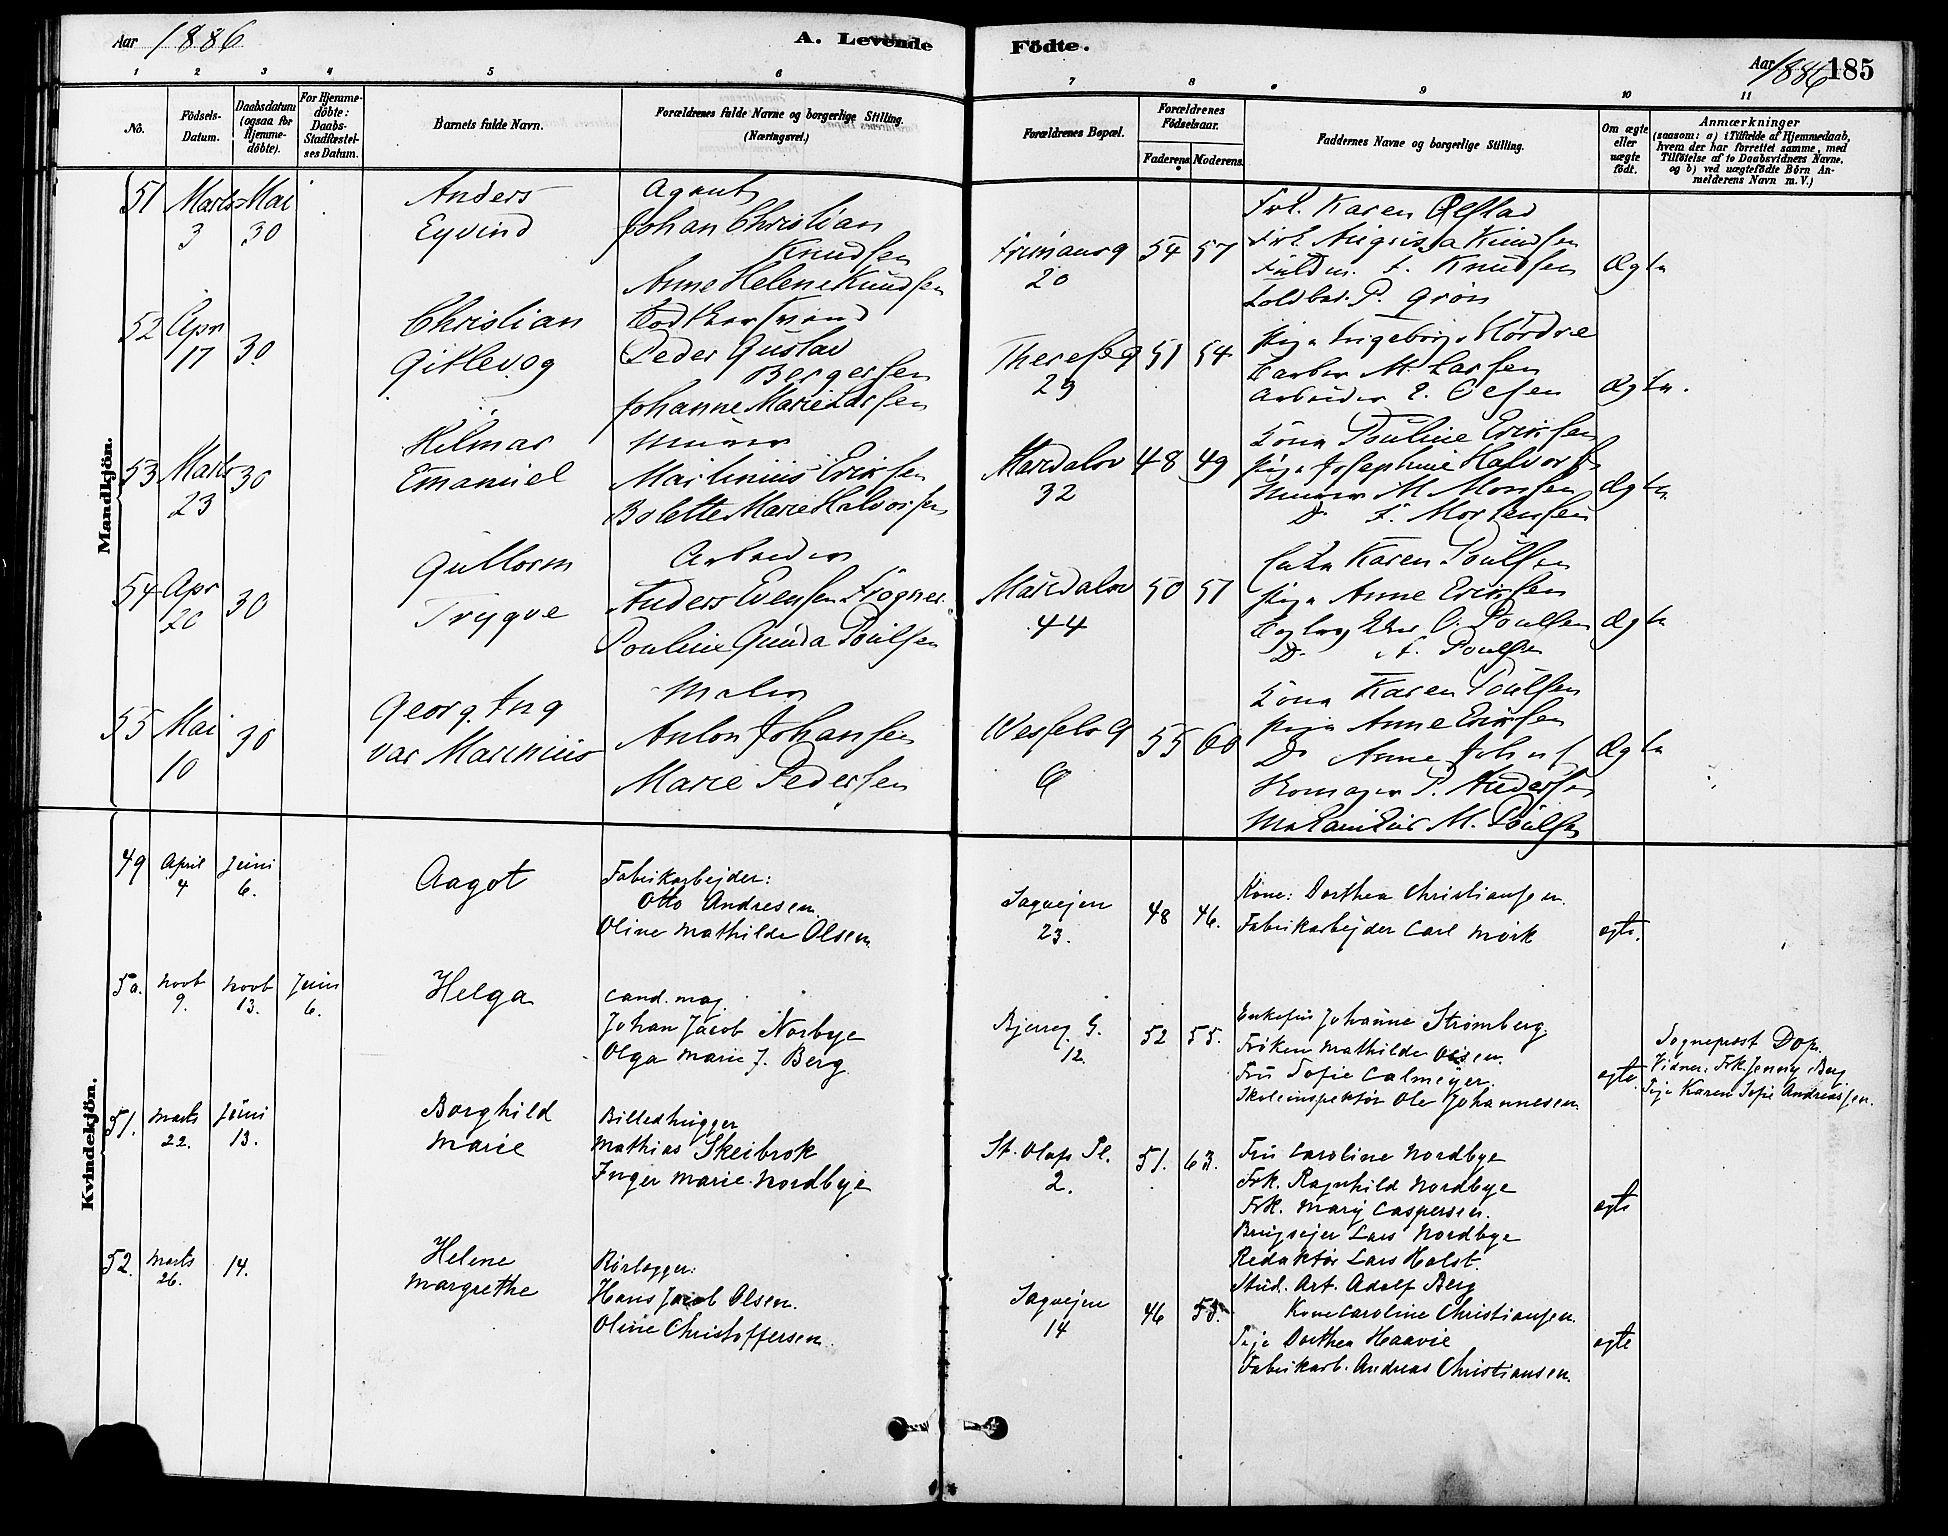 Aar 1886
A. Levende Födte.
Aar 1886 185
1 2 3 4 5 6 7 7 8 9 10 11
No.
Födsels-Datum.
Daabsdatum (ogsaa for Hjemme-döbte).
For Hjemme-döbte: Daabs-Stadfæstel-ses Datum.
Barnets fulde Navn.
Forældrenes fulde Navne og borgerlige Stilling. (Næringsvei.)
Forældrenes Bopæl.
Forældrenes Födselsaar.
Faderens. Moderens.
Faddernes Navne og borgerlige Stilling.
Om ægte eller uægte födt.
Anmærkninger
(saasom: a) i Tilfælde af Hjemmedaab,
hvem der har forrettet samme, med
Tilföielse af to Daabsvidners Navne,
og b) ved uægtefödte Börn An-
melderens Navn m. V.)
Mandkjön.
51 Marts 3 Mai 30
Anders
Eyvind
Agent
Johan Christian
Knudsen
Anne Helene Knudsen
20
54 57
Frk. Karen Ølstad
Frk. Augusta Knudsen
Fuldm. Knudsen
P. Grön
Ægte
52 Apr 17 30
Christian
Gitlev og
Peder Gustav
Bergersen
Johanne Marie Larsen
Therese g
29
51 54
Pige Ingeborg Nordre
M. Larsen
Arbeider E. Olsen
Ægte.
53 Marts 23 30
Hilmar
Emanuel
Murer
Martinius Eriksen
Bolette Marie Halvorsen
Maridalsv
32
48 49
Kona Pauline Eriksen
Pige Josephine Halvors
Murer M. Monsen
D. Mortensen
Ægte
54 Apr 20 30
Guttorm
Trygve
Arbeider
Anders Evensen Frogner
Pouline Gunda Poulsen
Maridalsv
44
50 57
Enke Karen Poulsen
Pige Anne Eriksen
O. Poulsen
D. A. Poulsen
Ægte
55 Mai 10 30
Georg Ing
var Marinius
Maler
Anton Johansen
Marie Pedersen
Wessels g
6
55 60
Kona Karen Poulsen
Pige Anne Eriksen
D. Anne Johns
Skomager P. Andersen
M. Poulsen
Ægte
Kvindekjön.
49 April 4 Juni 6.
Aagot
Fabrikarbejder:
Otto Andresen
Oline Mathilde Olsen
Sagvejen
23.
48 46.
Kone: Dorthea Christiansen.
Fabrikarbejder Carl Mørk
ægte.
50. Novb 9. Novb 13. Juni 6.
Helga
cand. mag.
Johan Jacob Norbye
Olga Marie J. Berg
Bjerreg. G.
12.
52 55.
Enkefru Johanne Strømberg
Frøken Mathilde Olsen.
Fru Sofie Calmeyer.
Skoleinspektør Ole Johannesen.
ægte
Sognepræst Dop.
Vidner: Frk. Jenny Berg
Pige Karen Sofie Andreassen.
51. Marts 22. Juni 13.
Borghild
Marie
Billedhugger
Mathias Skeibrok
Inger Marie Nordbye
St. Olafs Pl.
2.
51. 63.
Fru Caroline Nordbye
Frk. Ragnhild Nordbye
Frk. Mary Caspersen.
Brugsejer Lars Nordbye
Redaktør Lars Holst.
Stud. Art. Adolf Berg
ægte
52. Marts 26. 14.
Helene
Margrethe
Rørlægger:
Hans Jacob Olsen.
Oline Christoffersen.
Sagvejen
14
46 55.
Kone Caroline Christiansen.
Pige Dorthea Haavie
Fabrikarb. Andreas Christiansen.
ægte